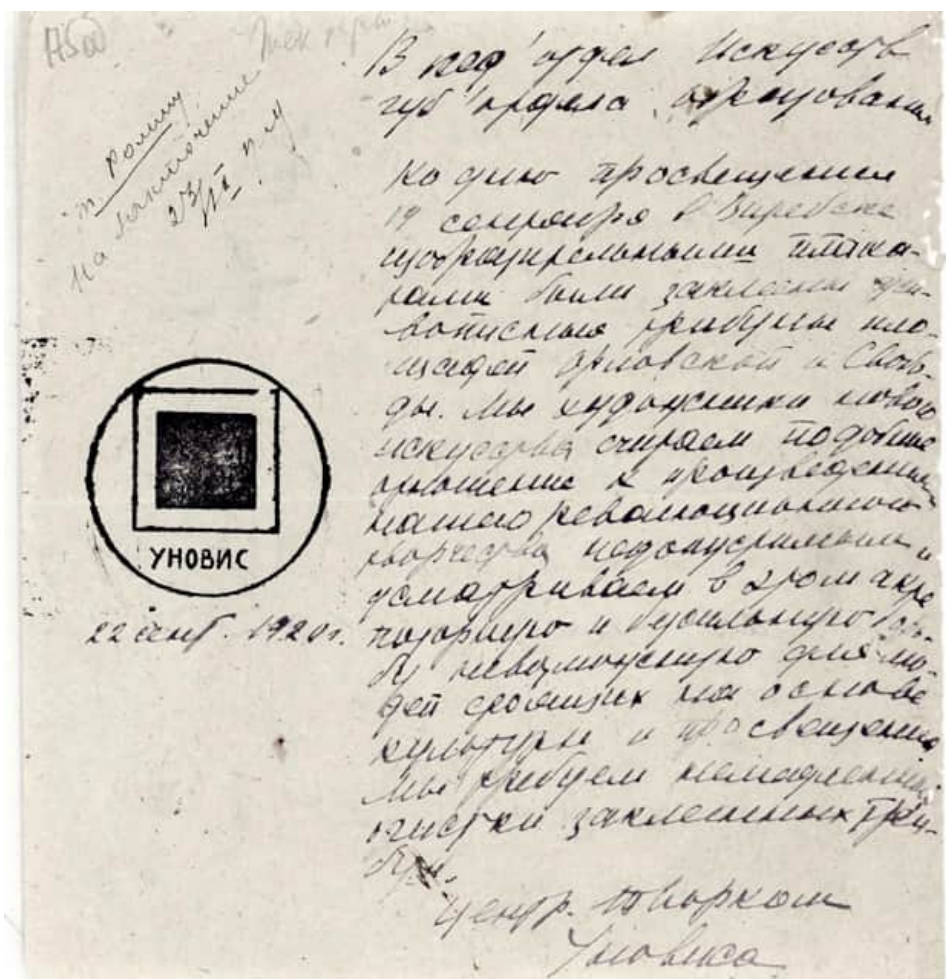 т. Ромму
На заключение
23/IX
В под'отдел Искусств
губ'отдела образования
Ко дню просвещения
19 сентября в Витебске
изобразительными плака-
тами были заклеены жи-
вописные трибуны пло-
щадей Орловской и Свобо-
ды. Мы художники нового
искусства считаем подобное
отношение к произведениям
нашего революционного
творчества недопустимым и
усматриваем в этом акте
позорную и бессильную борь-
бу невозможную для лю-
дей стоящих на основе
культуры и просвещения
Мы требуем немедленной
очистки заклеенных три-
бун.
Центр. творком
Уновиса
УНОВИС
22 сент. 1920 г.